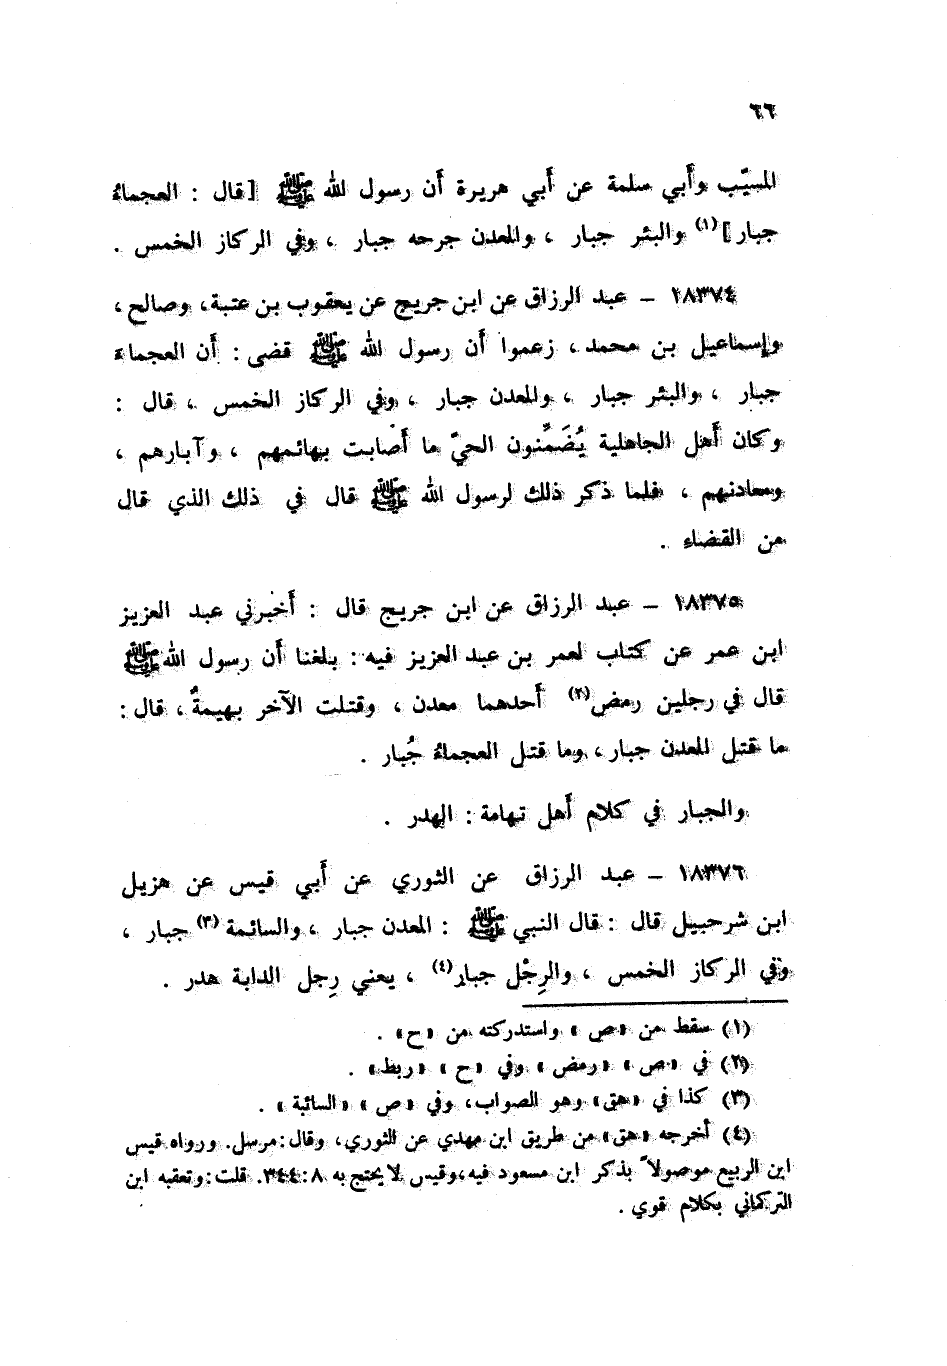 ٦٦
المسيّب وأَبي سلمة عن أَبي هريرة أَن رسول الله ﷺ [قال : العجماءُ
جبار](١) والبئر جبار ، والمعدن جرحه جبار ، وفي الركاز الخمس .
١٨٣٧٤ – عبد الرزاق عن ابن جريج عن يعقوب بن عتبة، وصالح ،
وإسماعيل بن محمد ، زعموا أَن رسول الله ﷺ قضى : أَن العجماءَ
جبار ، والبئر جبار ، والمعدن جبار ، وفي الركاز الخمس ، قال :
وكان أَهل الجاهلية يُضَمِّنون الحيّ ما أَصابت بهائمهم ، وآبارهم ،
ومعادنهم ، فلما ذكر ذلك لرسول الله ﷺ قال في ذلك الذي قال
من القضاء .
١٨٣٧٥ – عبد الرزاق عن ابن جريج قال : أَخبرني عبد العزيز
ابن عمر عن كتاب لعمر بن عبد العزيز فيه : بلغنا أَن رسول الله ﷺ
قال في رجلين رمض(٢) أَحدهما معدن ، وقتلت الآخر بهيمةٌ ، قال :
ما قتل المعدن جبار ، وما قتل العجماءُ جُبار .
والجبار في كلام أَهل تهامة : الهدر .
١٨٣٧٦ – عبد الرزاق عن الثوري عن أَبي قيس عن هزيل
ابن شرحبيل قال : قال النبي ﷺ : المعدن جبار ، والسائمة (٣) جبار ،
وفي الركاز الخمس ، والرِجْل جبار(٤) ، يعني رِجل الدابة هدر .
(١) سقط من «ص» واستدركته من «ح» .
(٢) في «ص» «رمض» وفي «ح» «ربط» .
(٣) كذا في «هق» وهو الصواب، وفي «ص» «السائبة» .
(٤) أخرجه «هق» من طريق ابن مهدي عن الثوري، وقال: مرسل. ورواه قيس
ابن الربيع موصولاً بذكر ابن مسعود فيه، وقيس لا يحتج به ٨: ٣٤٤. قلت: وتعقبه ابن
التركماني بكلام قوي .